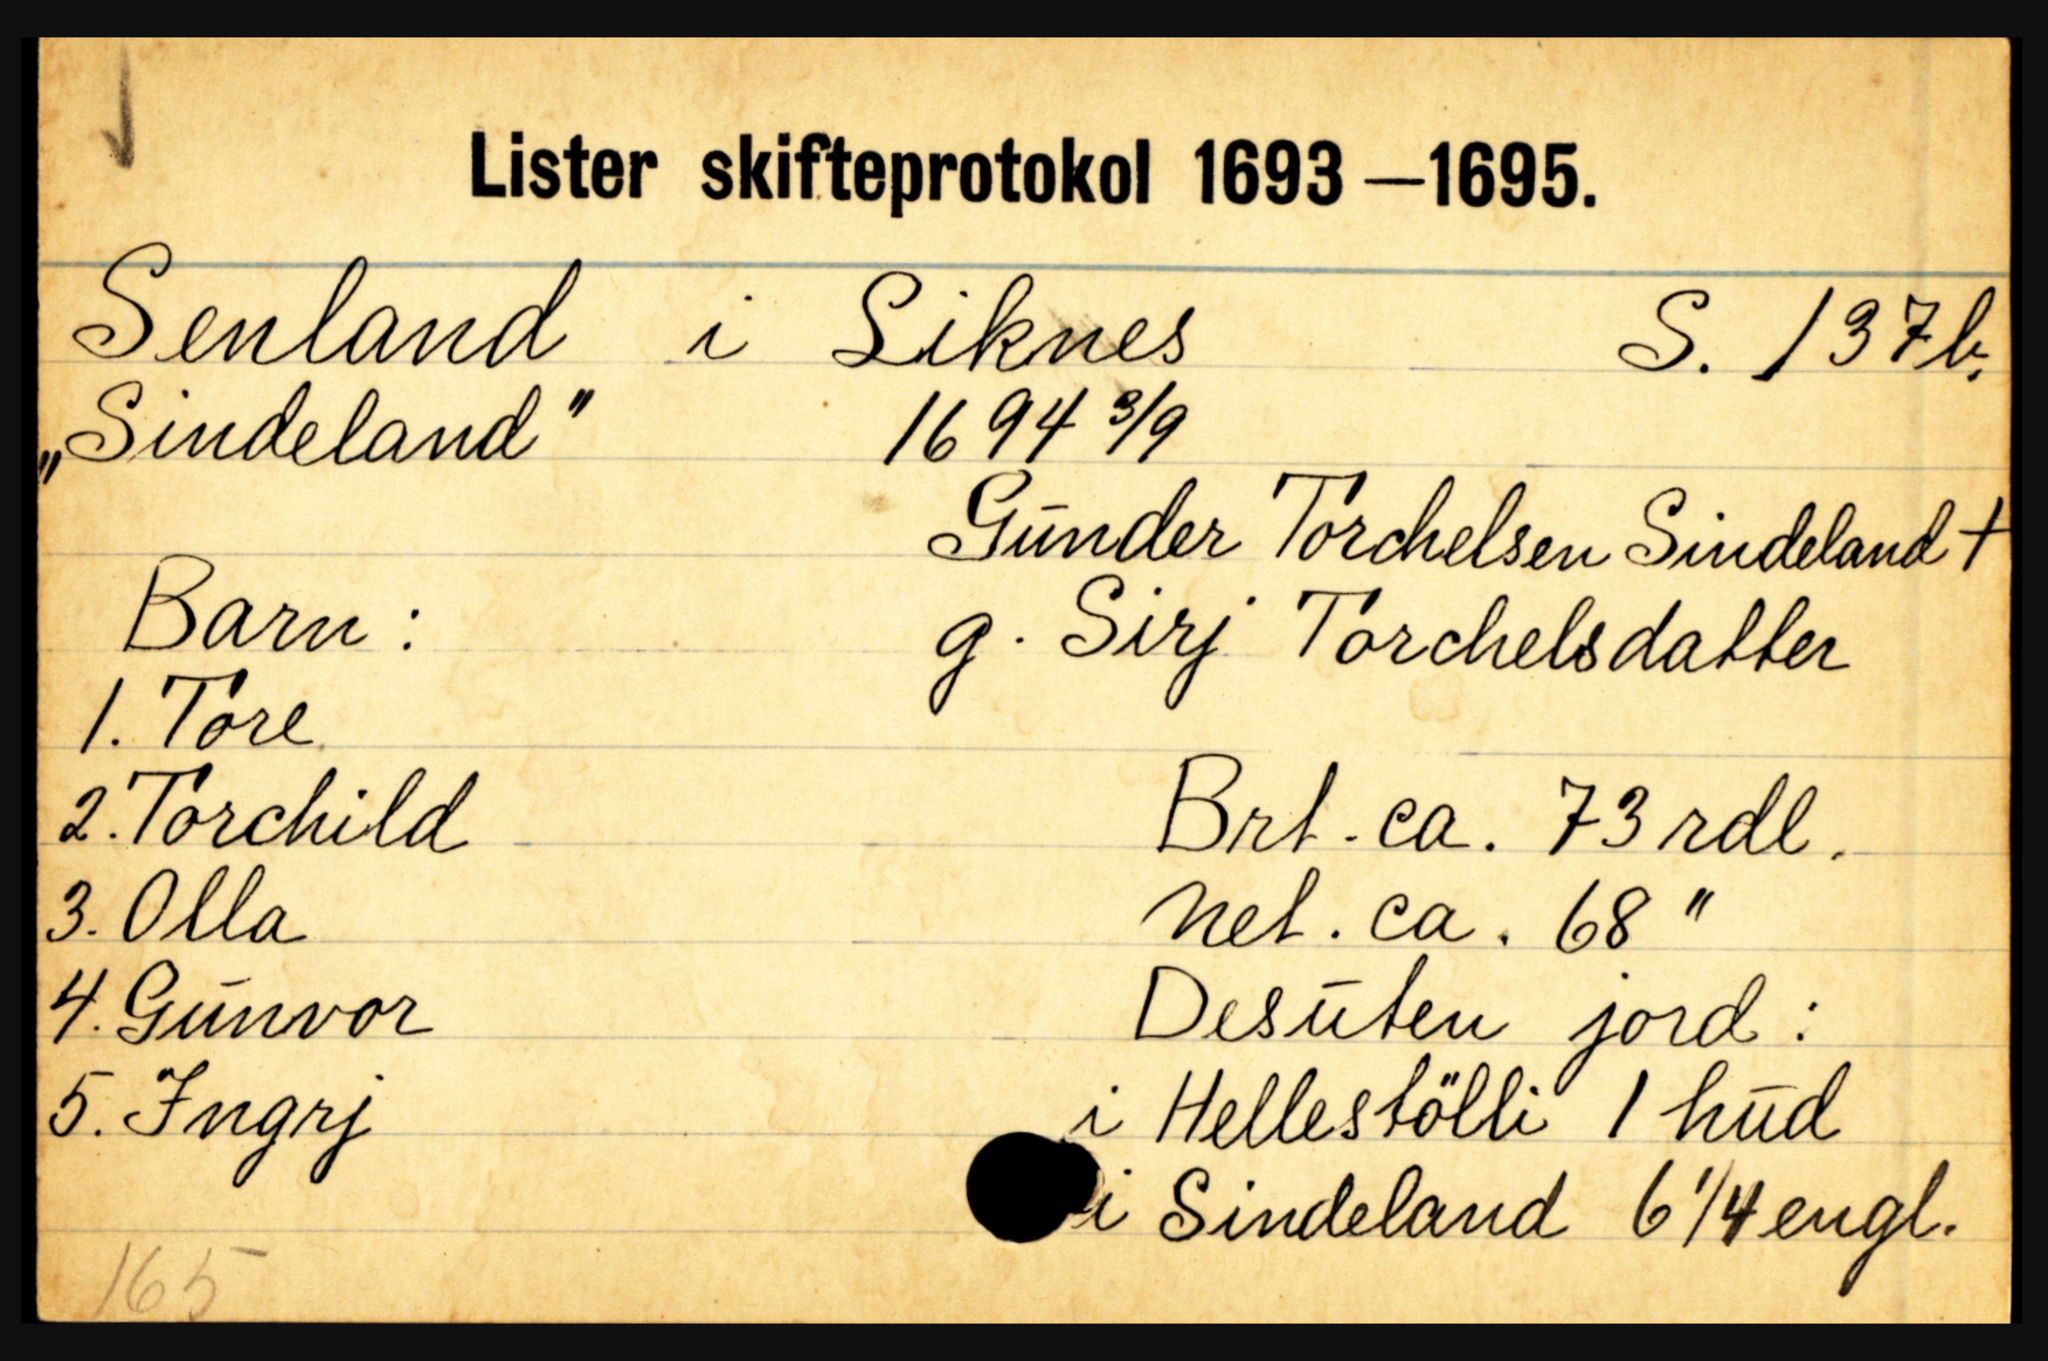 Lister skifteprotokol 1693—1695.
Senland i Liknes S. 137b.
„Sindeland" 1694 3/9
Gūnder Torchelsen Sindeland †
Barn: g. Sirj Torchelsdatter
1. Tore
2. Torchild Brt. ca. 73 rdl.
3. Olla Net. ca. 68 "
4. Gūnvor Desūten jord:
5. Ingrj i Hellestölli 1 hūd
i Sindeland 6 1/4 engl.
165